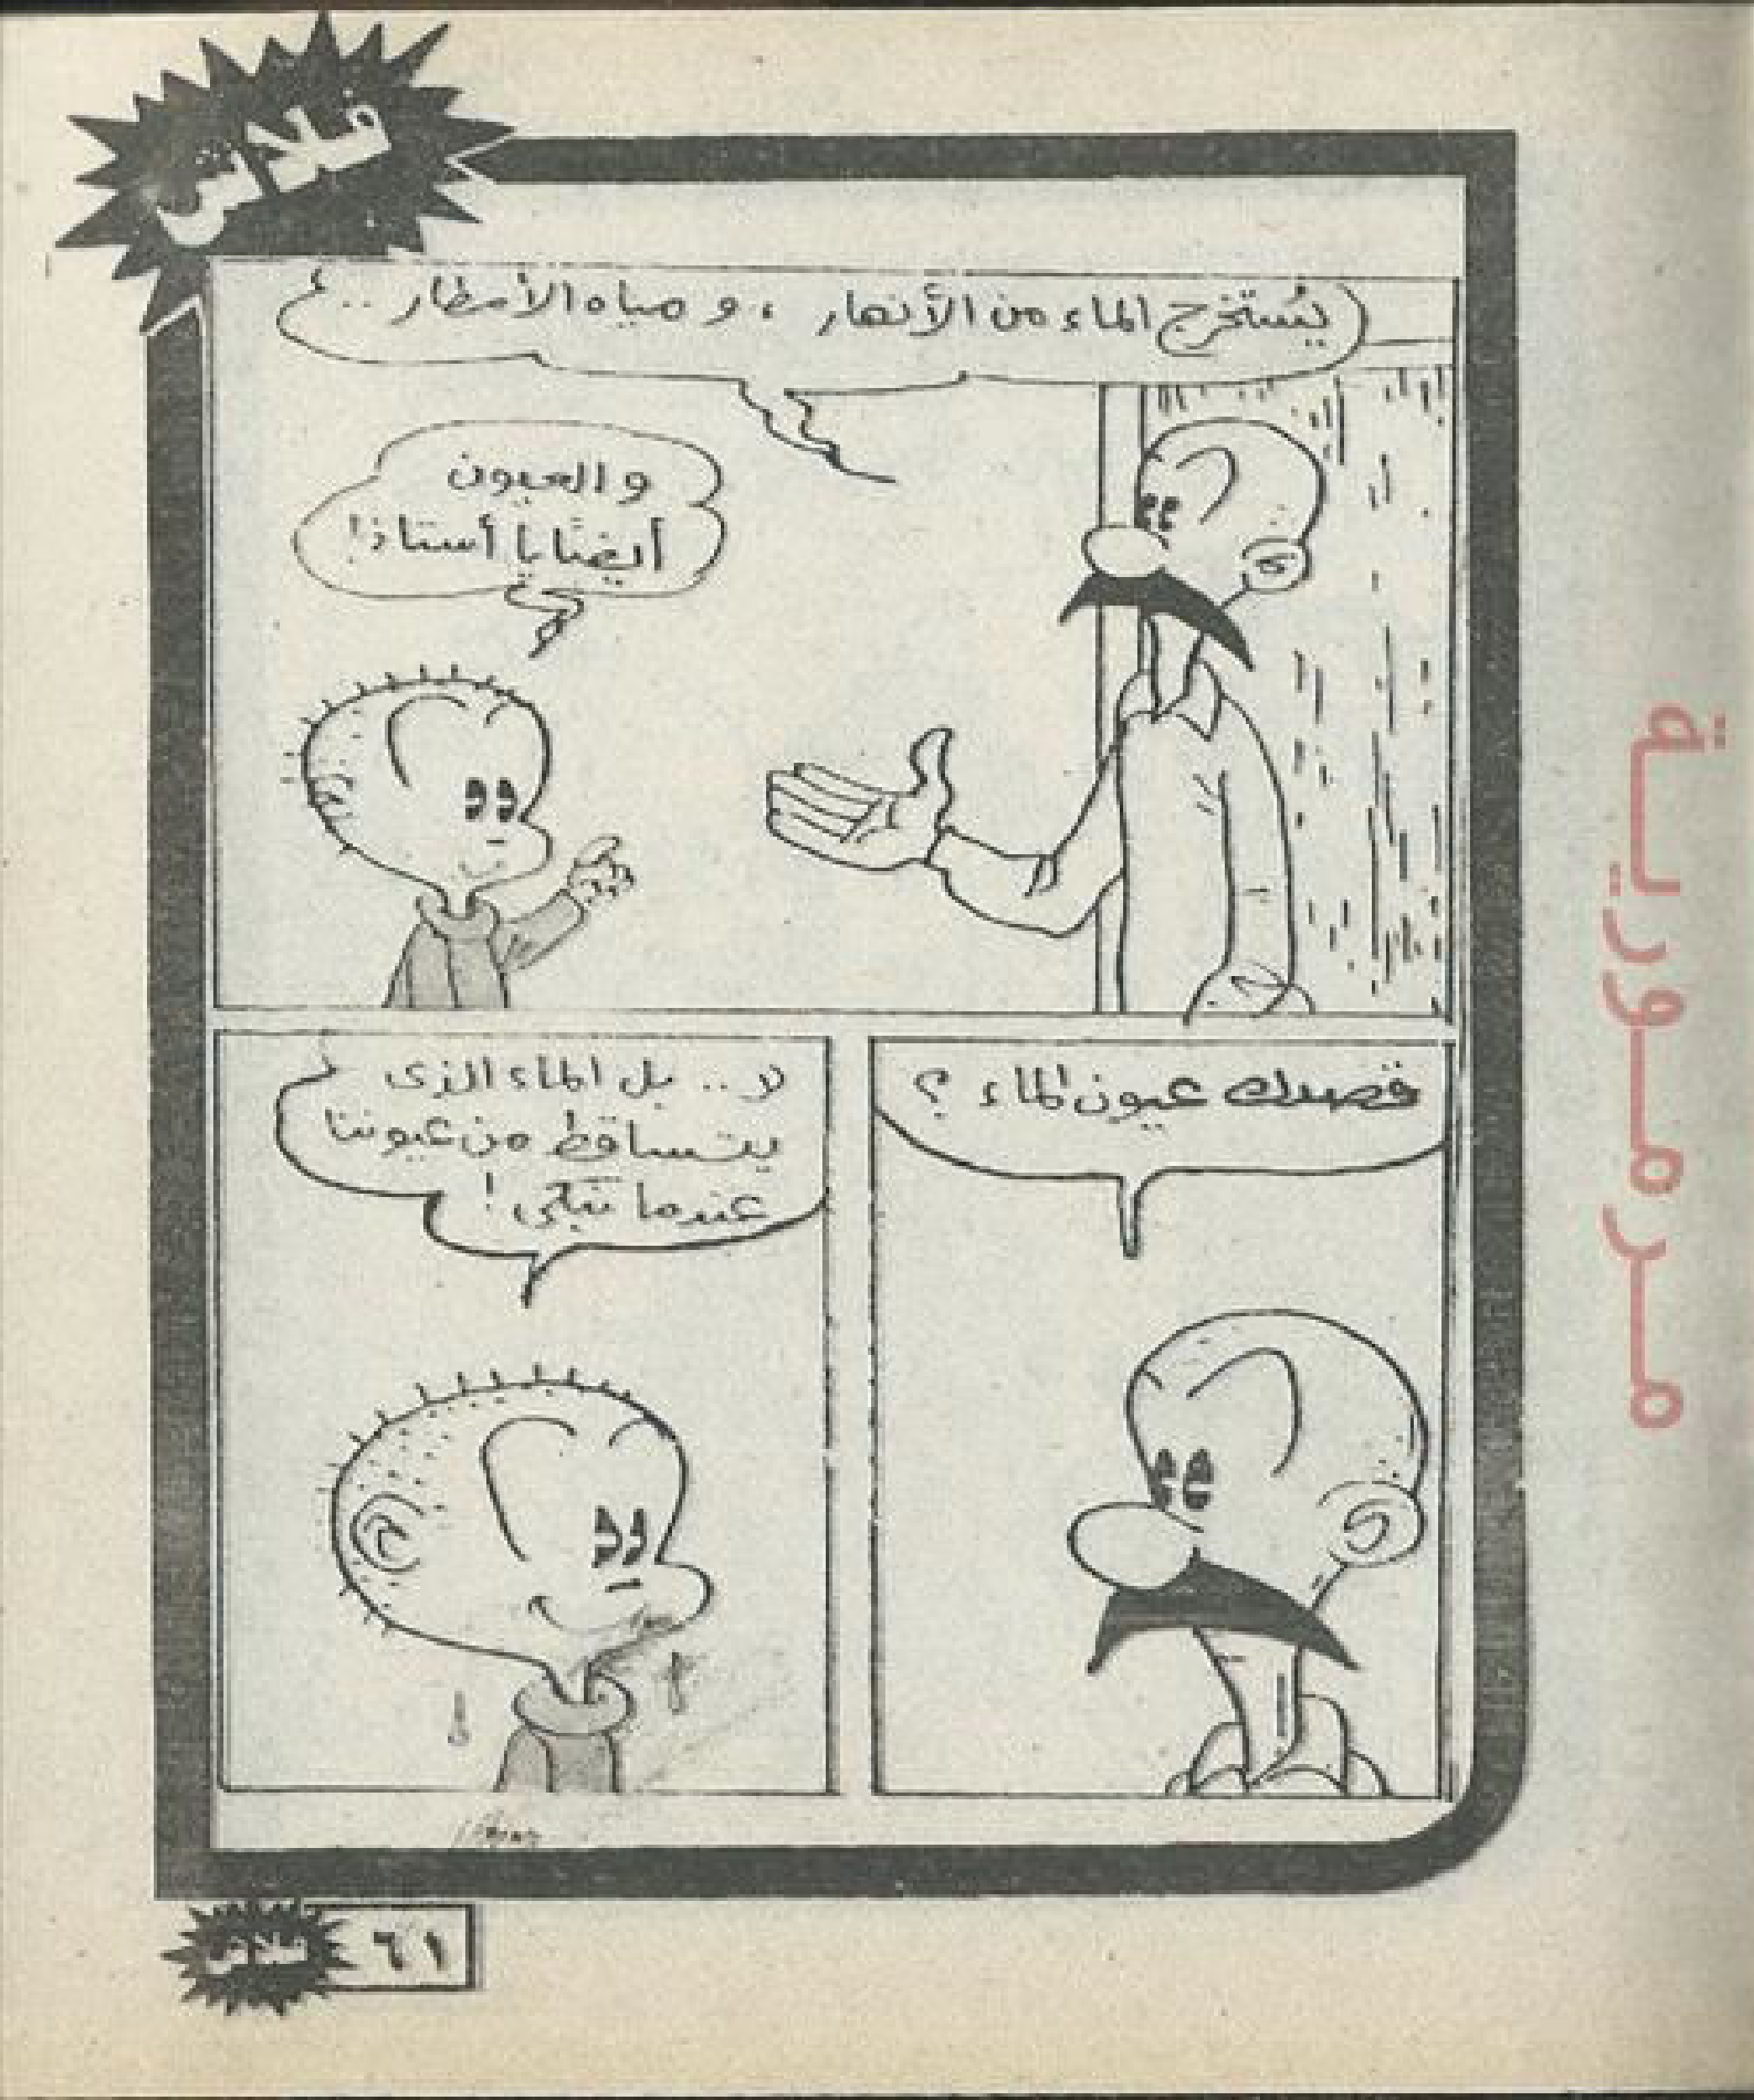 فلاش
يُستخرج الماء من الأنهار ، و مياه الأمطار ..
و العيون
أيضًا يا أستاذ!
قصدك عيون الماء ؟
لا .. بل الماء الذى
يتساقط من عيوننا
عندما نبكى !
مرمورية
٦١
فلاش